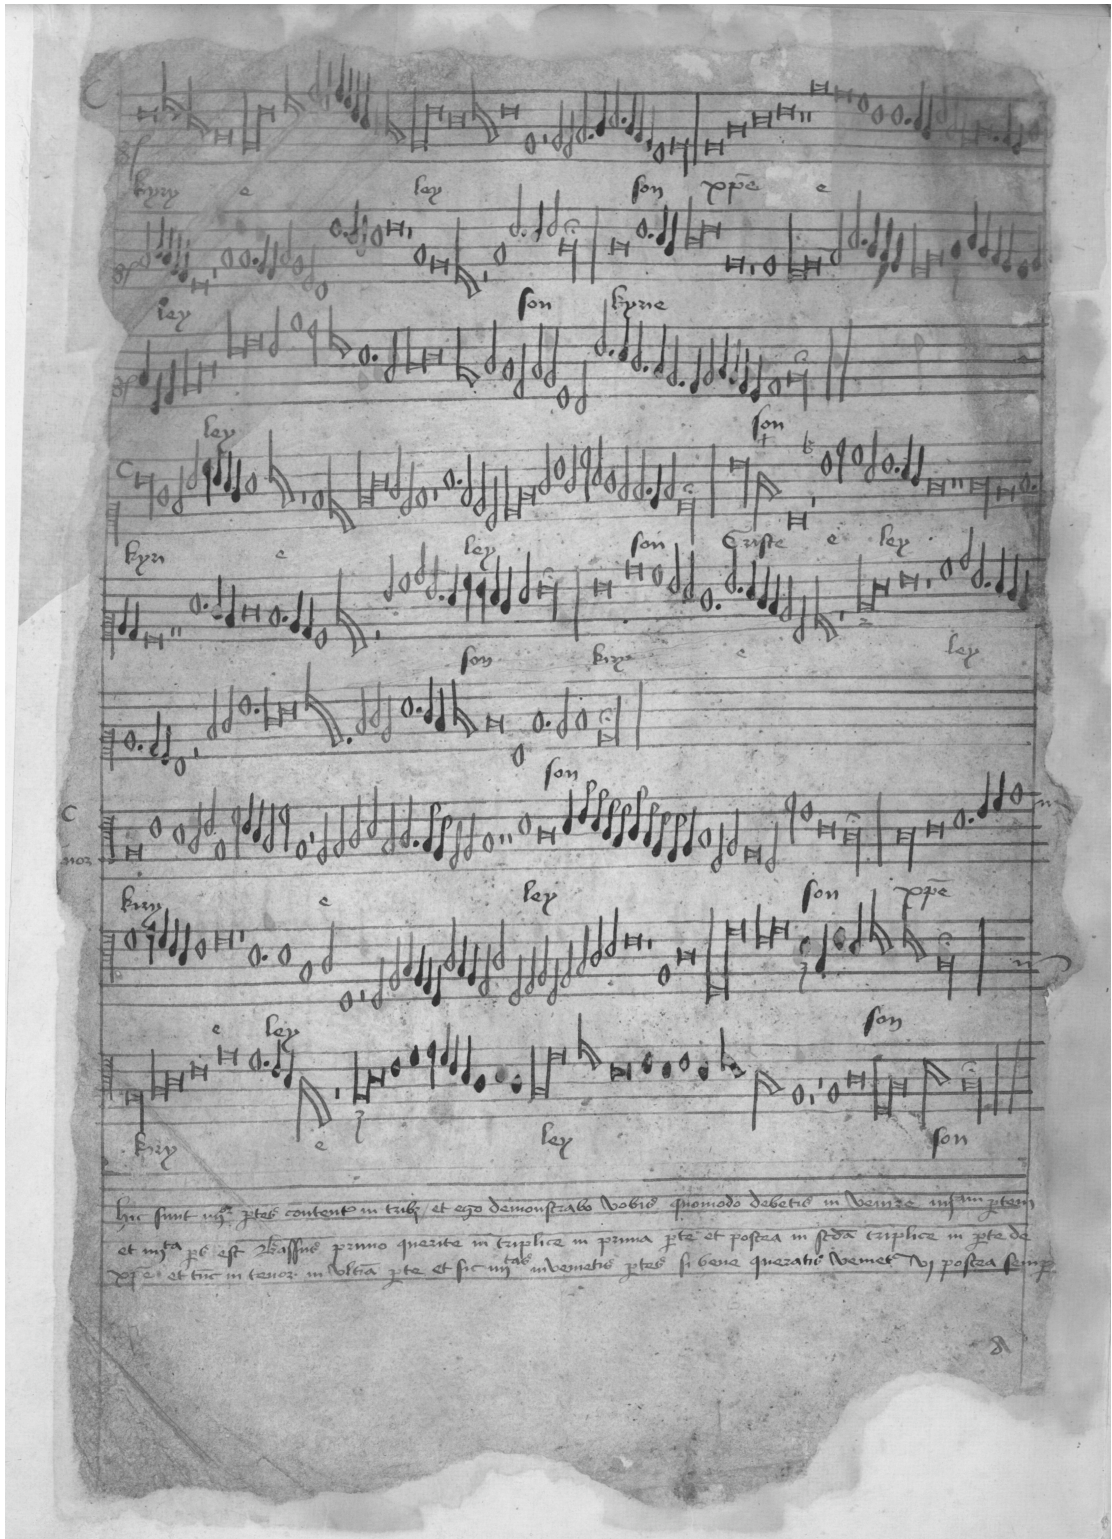 kyry e ley son xpē e
ley son kyrie
ley son
kyri e ley son Criste e ley
son kiry e ley
son
kiry e ley son xpē
e ley son
kiry e ley son
hic sunt ptes content in trib et ego demonstrabo vobis quomodo debetis in venire ptem
et ps est primo querite in triplice in prima pte et postea in scda triplice in pte de
xpē et tūc in tenor in vltia pte et sic invenietis ptes si bene queratis postea semp